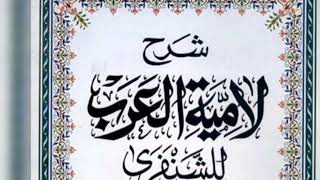 شرح
لامية العرب
للشنفرى